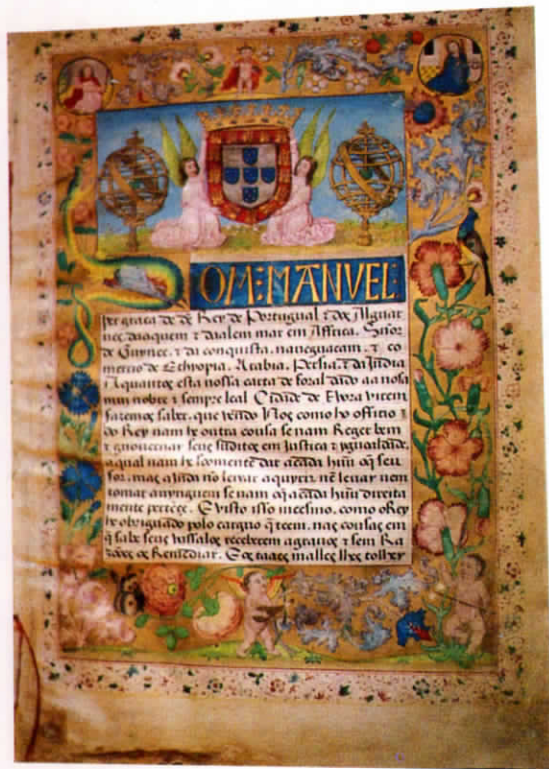 DOM: MANVEL:
per graca de ds Rey de Portugual τ dos Alguar
ues daaquem τ dalem mar em Affrica. Señor
de Guynee. τ da conquista. naueguacam. τ co
mercio de Ethiopia. Arabia. Persia. τ da India
Aquantos esta nossa carta de foral dado aa nosa
muy nobre τ sempre leal Cidade de Evora virem
fazemos saber. que vendo Nos como ho officio
do Rey nam he outra cousa senam Reger bem
τ guovernar seus subditos em Justica τ ygualdade.
aqual nam he soomente dar acada huũ oq̃ seu
for. mas ajnda nõ leixar aquyrir. nẽ leuar nem
tomar anynguem se nam oq̃ acada huũ direita
mente pertẽçe. E visto isso meesmo. como o Rey
he obriguado polo carguo q̃ teem. nas cousas em
q̃ sabe seus vassalos reçeberem agrauos τ sem Ra
zoões os Remediar. E os taaes malles lhes tolher